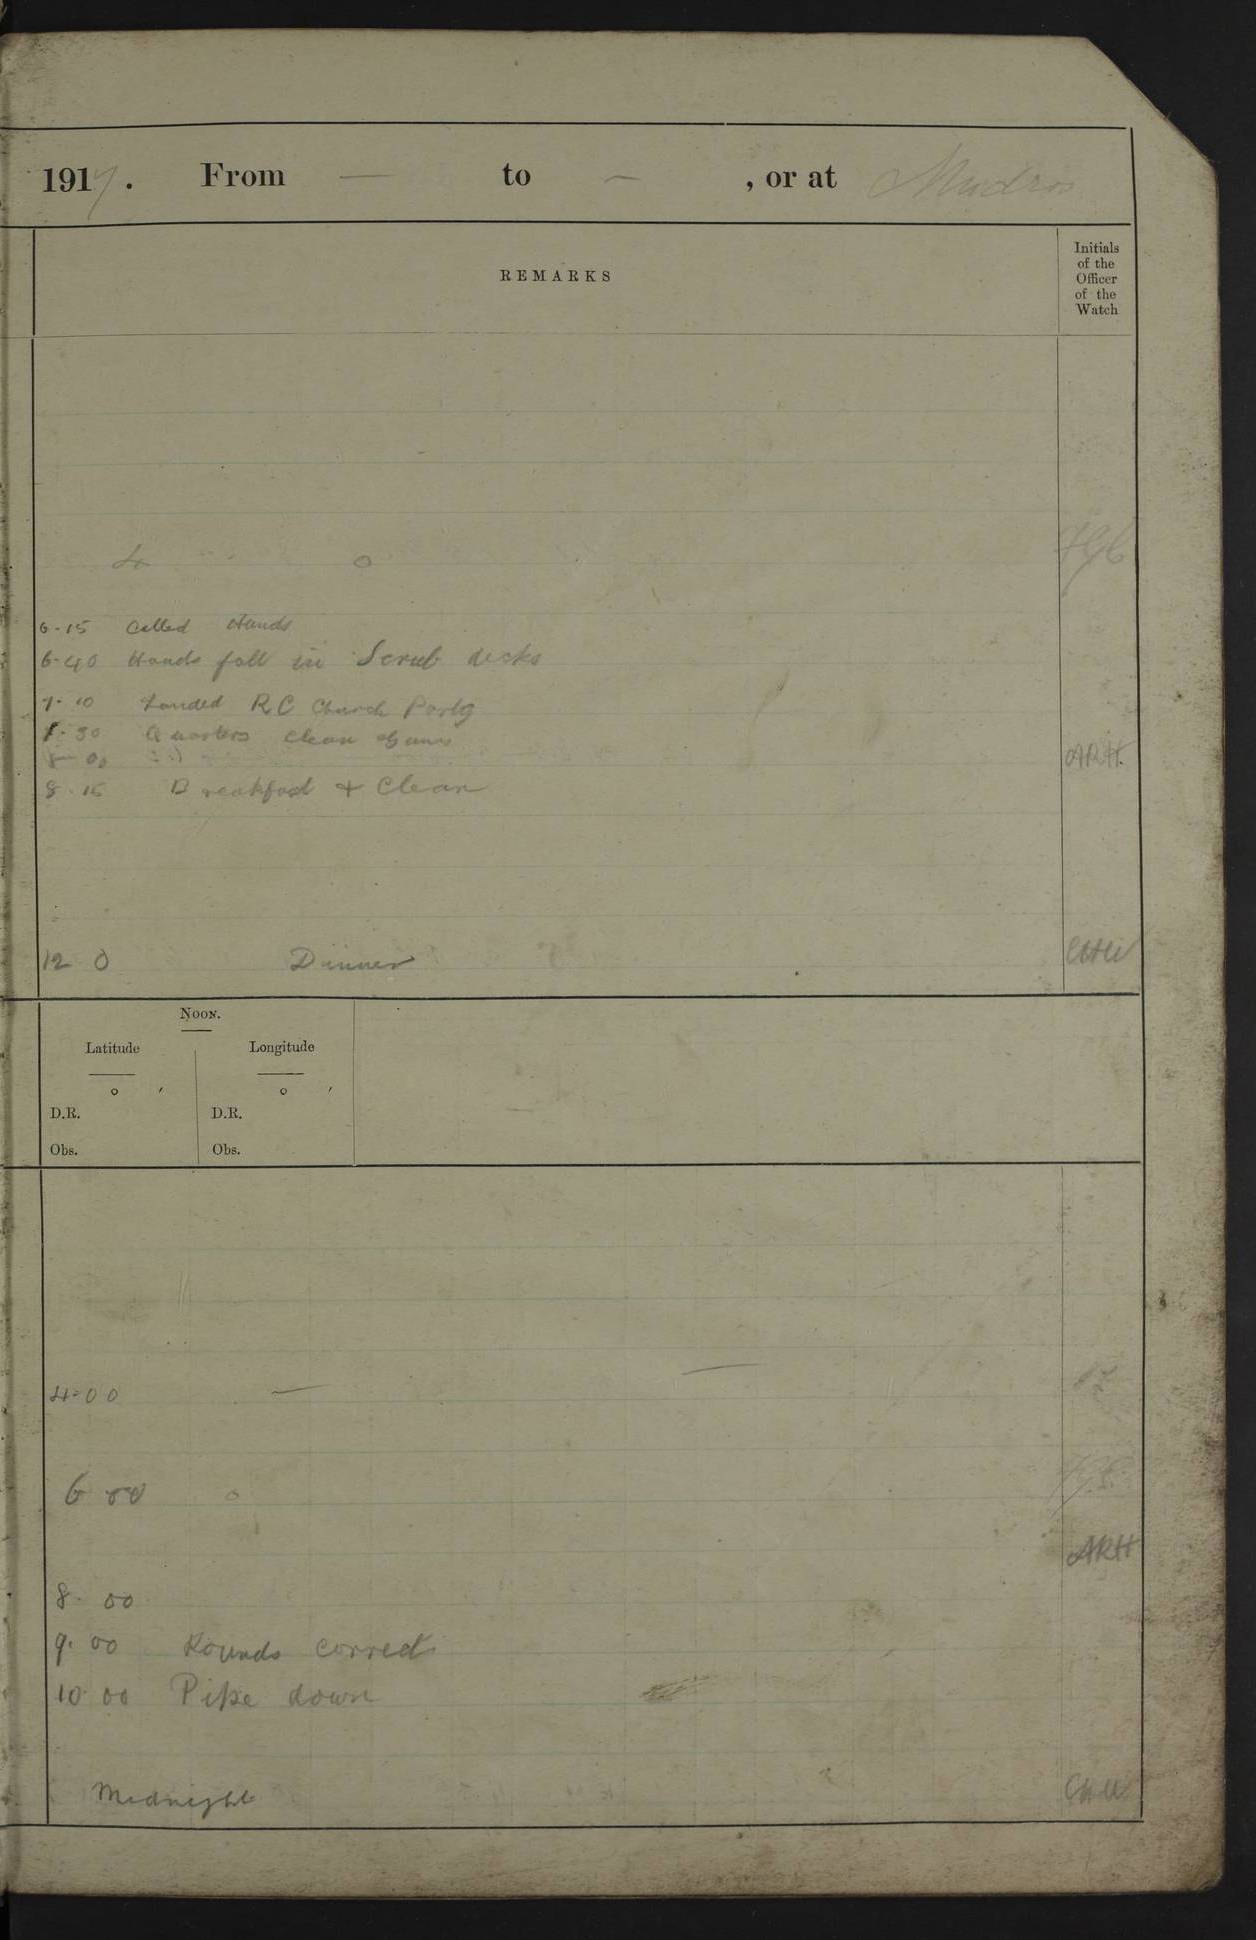 1917. From — to — , or at Mudros
REMARKS
Initials
of the
Officer
of the
Watch
6-15 Called Hands
6-40 Hands fall in Scrub decks
7-10 Landed RC Church Party
7-30 Quarters clean Guns
8-00
ARH
8-15 Breakfast + Clean
12 0 Dinner
NOON.
Latitude Longitude
° ′ ° ′
D.R. D.R.
Obs. Obs.
4-00 — —
6 00 0
ARH
8. 00
9. 00 Rounds correct
10 00 Pipe down
Midnight